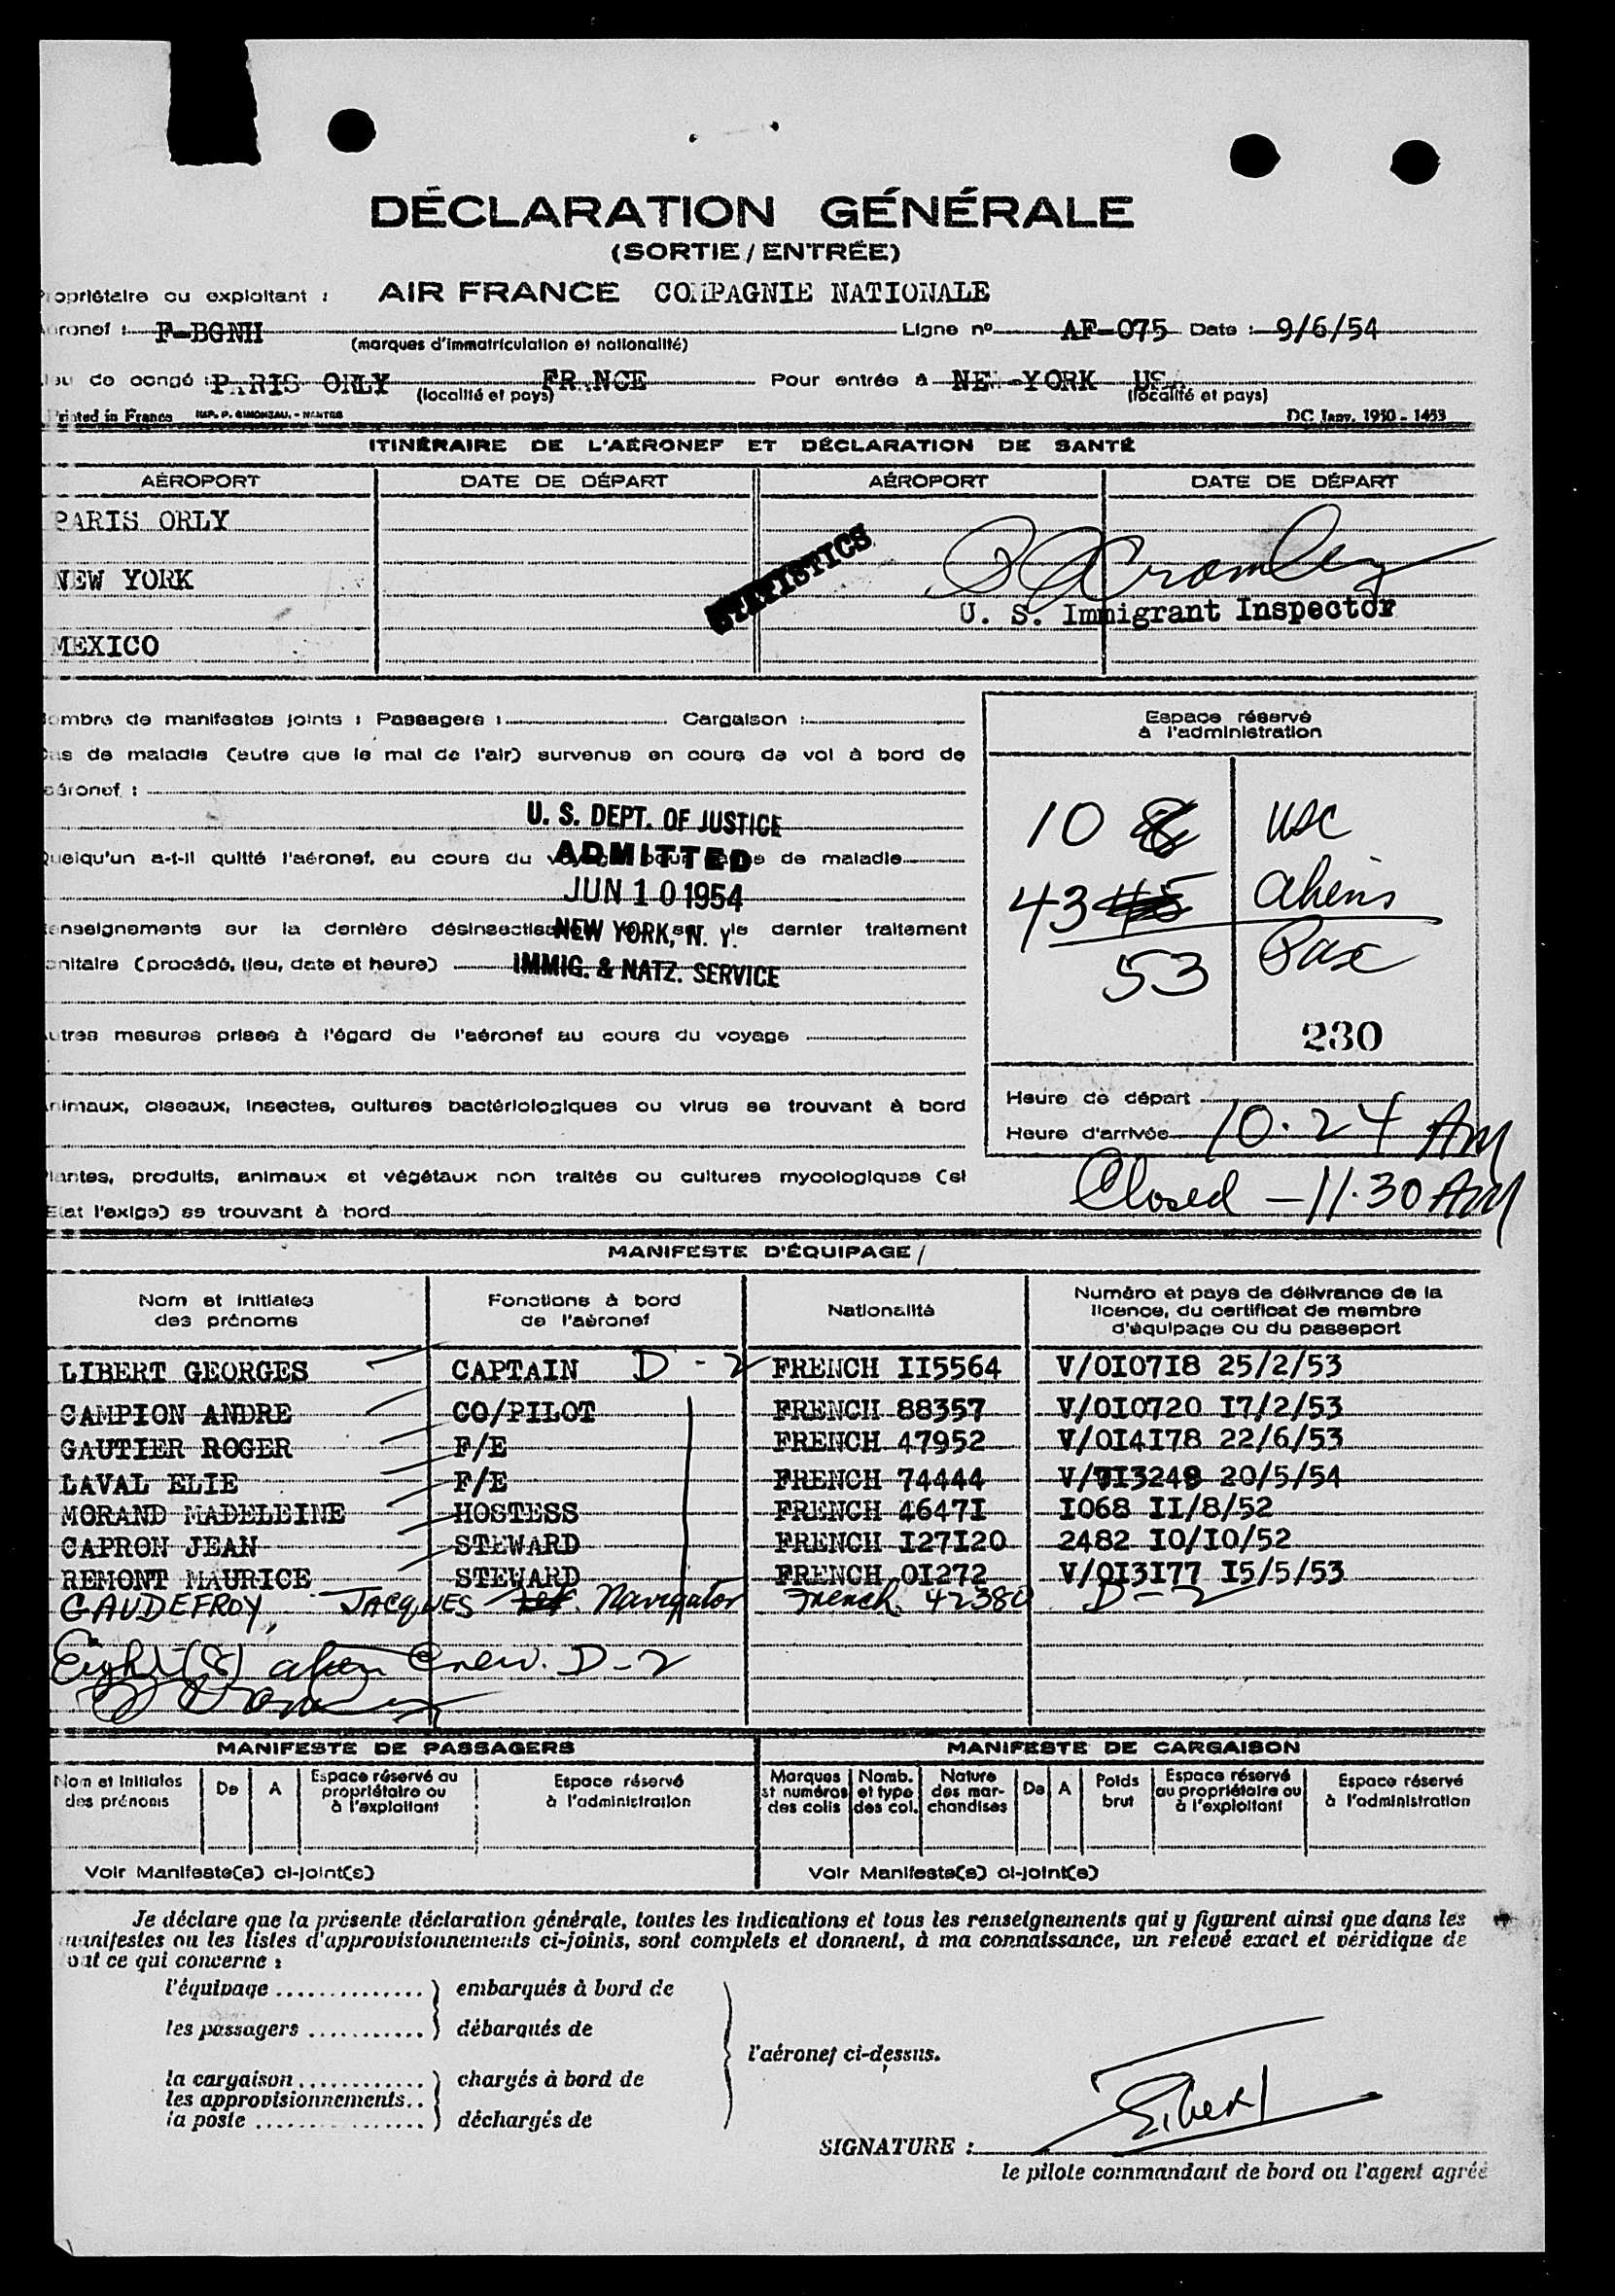 DÉCLARATION GÉNÉRALE
(SORTIE/ENTRÉE)
opriétaire ou exploitant : AIR FRANCE COMPAGNIE NATIONALE
ronef : F-BGNH Ligne nº AF-075 Date : 9/6/54
(marques d'immatriculation et nationalité)
eu de congé : P.RIS ORLY FR.NCE Pour entrée à NE -YORK US.
(localité et pays) (localité et pays)
Printed in France IMP. P. SIMONEAU. - NANTES DC Janv. 1950 - 1453
ITINÉRAIRE DE L'AÉRONEF ET DÉCLARATION DE SANTÉ
AÉROPORT DATE DE DÉPART AÉROPORT DATE DE DÉPART
PARIS ORLY
STATISTICS
NEW YORK
U. S. Immigrant Inspector
MEXICO
ombre de manifestes joints : Passagers : Cargaison :
Espace réservé
à l'administration
as de maladie (autre que le mal de l'air) survenus en cours de vol à bord de
aéronef :
10 8 USC
U. S. DEPT. OF JUSTICE
Quelqu'un a-t-il quitté l'aéronef, au cours du voyage pour cause de maladie
ADMITTED
JUN 10 1954
43 45 aliens
enseignements sur la dernière désinsectisation dernier traitement
NEW YORK, N. Y.
anitaire (procédé, lieu, date et heure)
IMMIG. & NATZ. SERVICE
53 Pax
utres mesures prises à l'égard de l'aéronef au cours du voyage
230
nimaux, oiseaux, insectes, cultures bactériologiques ou virus se trouvant à bord
Heure de départ
Heure d'arrivée 10.24 AM
lantes, produits, animaux et végétaux non traités ou cultures mycologiques (si
Closed - 11.30 AM
Etat l'exige) se trouvant à bord
MANIFESTE D'ÉQUIPAGE
Nom et initiales des prénoms Fonctions à bord de l'aéronef Nationalité Numéro et pays de délivrance de la licence, du certificat de membre d'équipage ou du passeport
LIBERT GEORGES CAPTAIN D - 2 FRENCH II5564 V/0I07I8 25/2/53
CAMPION ANDRE CO/PILOT FRENCH 88357 V/0I0720 I7/2/53
GAUTIER ROGER F/E FRENCH 47952 V/0I4I78 22/6/53
LAVAL ELIE F/E FRENCH 74444 V/0I3248 20/5/54
MORAND MADELEINE HOSTESS FRENCH 4647I I068 II/8/52
CAPRON JEAN STEWARD FRENCH I27I20 2482 I0/I0/52
REMONT MAURICE STEWARD FRENCH 0I272 V/0I3I77 I5/5/53
GAUDEFROY, JACQUES Navigator French 42380 D - 2
Eight (8) alien Crew. D-2
MANIFESTE DE PASSAGERS MANIFESTE DE CARGAISON
Nom et initiales des prénoms De A Espace réservé au propriétaire ou à l'exploitant Espace réservé à l'administration Marques et numéros des colis Nomb. et type des col. Nature des marchandises De A Poids brut Espace réservé au propriétaire ou à l'exploitant Espace réservé à l'administration
Voir Manifeste(s) ci-joint(s) Voir Manifeste(s) ci-joint(s)
Je déclare que la présente déclaration générale, toutes les indications et tous les renseignements qui y figurent ainsi que dans les
manifestes ou les listes d'approvisionnements ci-joints, sont complets et donnent, à ma connaissance, un relevé exact et véridique de
out ce qui concerne :
l'équipage .............. embarqués à bord de
les passagers ........... débarqués de
l'aéronef ci-dessus.
la cargaison ............ chargés à bord de
les approvisionnements..
la poste ................ déchargés de
Libert
SIGNATURE :
le pilote commandant de bord ou l'agent agréé